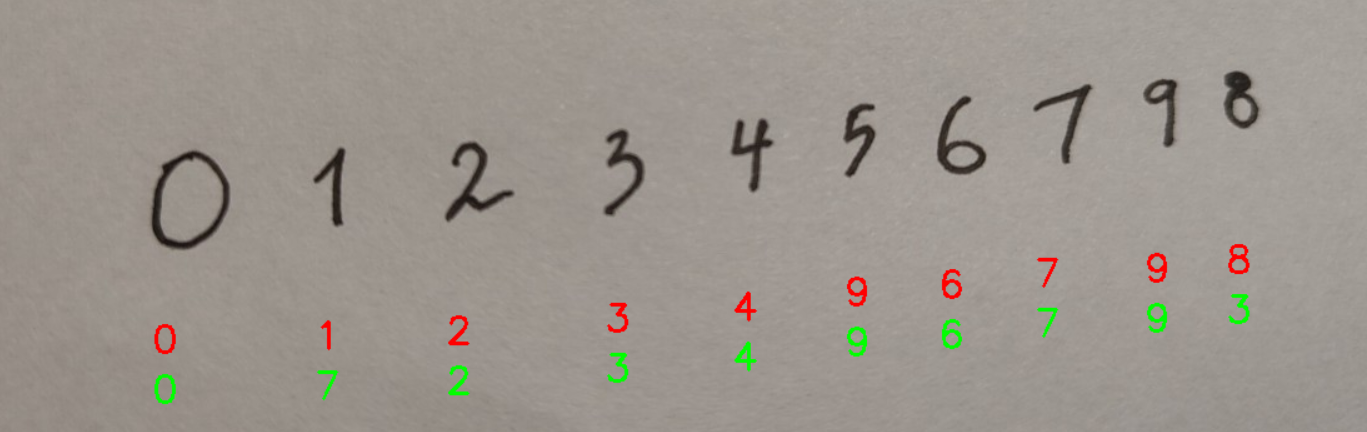 0 1 2 3 4 5 6 7 9 8
0 1 2 3 4 9 6 7 9 8
0 7 2 3 4 9 6 7 9 3